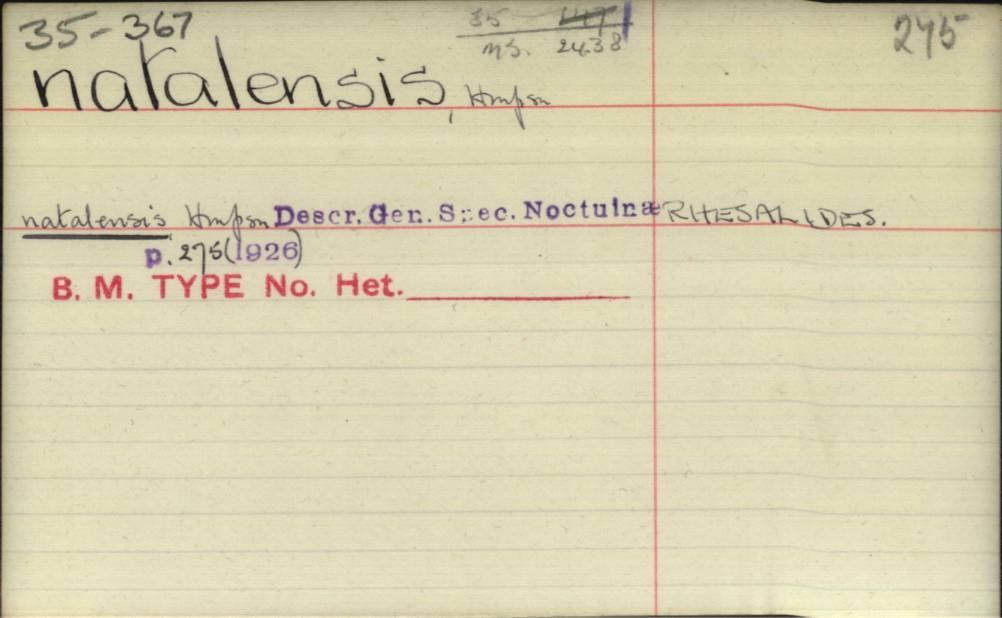 35-367
35
ms. 2438
275
natalensis, Hmpsn
natalensis Hmpsn Descr. Gen. Spec. Noctuinæ RHESALIDES.
p. 275 (1926)
B. M. TYPE No. Het.